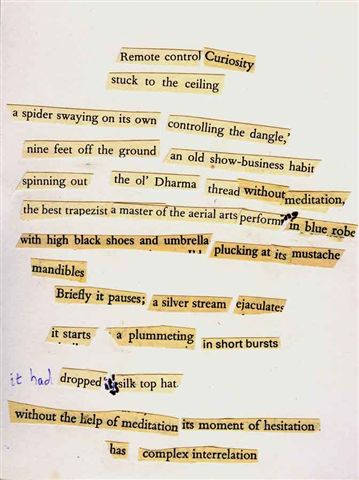 Remote control Curiosity
stuck to the ceiling
a spider swaying on its own controlling the dangle,'
nine feet off the ground an old show-business habit
spinning out the ol' Dharma thread without meditation,
the best trapezist a master of the aerial arts perform in blue robe
with high black shoes and umbrella plucking at its mustache
mandibles
Briefly it pauses; a silver stream ejaculates
it starts a plummeting in short bursts
it had dropped silk top hat
without the help of meditation its moment of hesitation
has complex interrelation